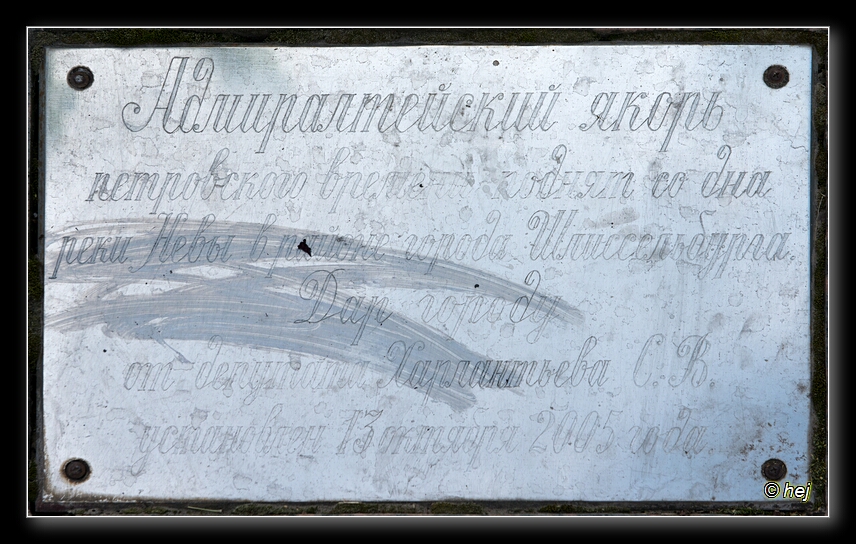 Адмиралтейский якорь
петровского времени поднят со дна
реки Невы в районе города Шлиссельбурга.
Дар городу
от депутата Харлантьева С.В.
установлен 13 октября 2005 года.
© hej